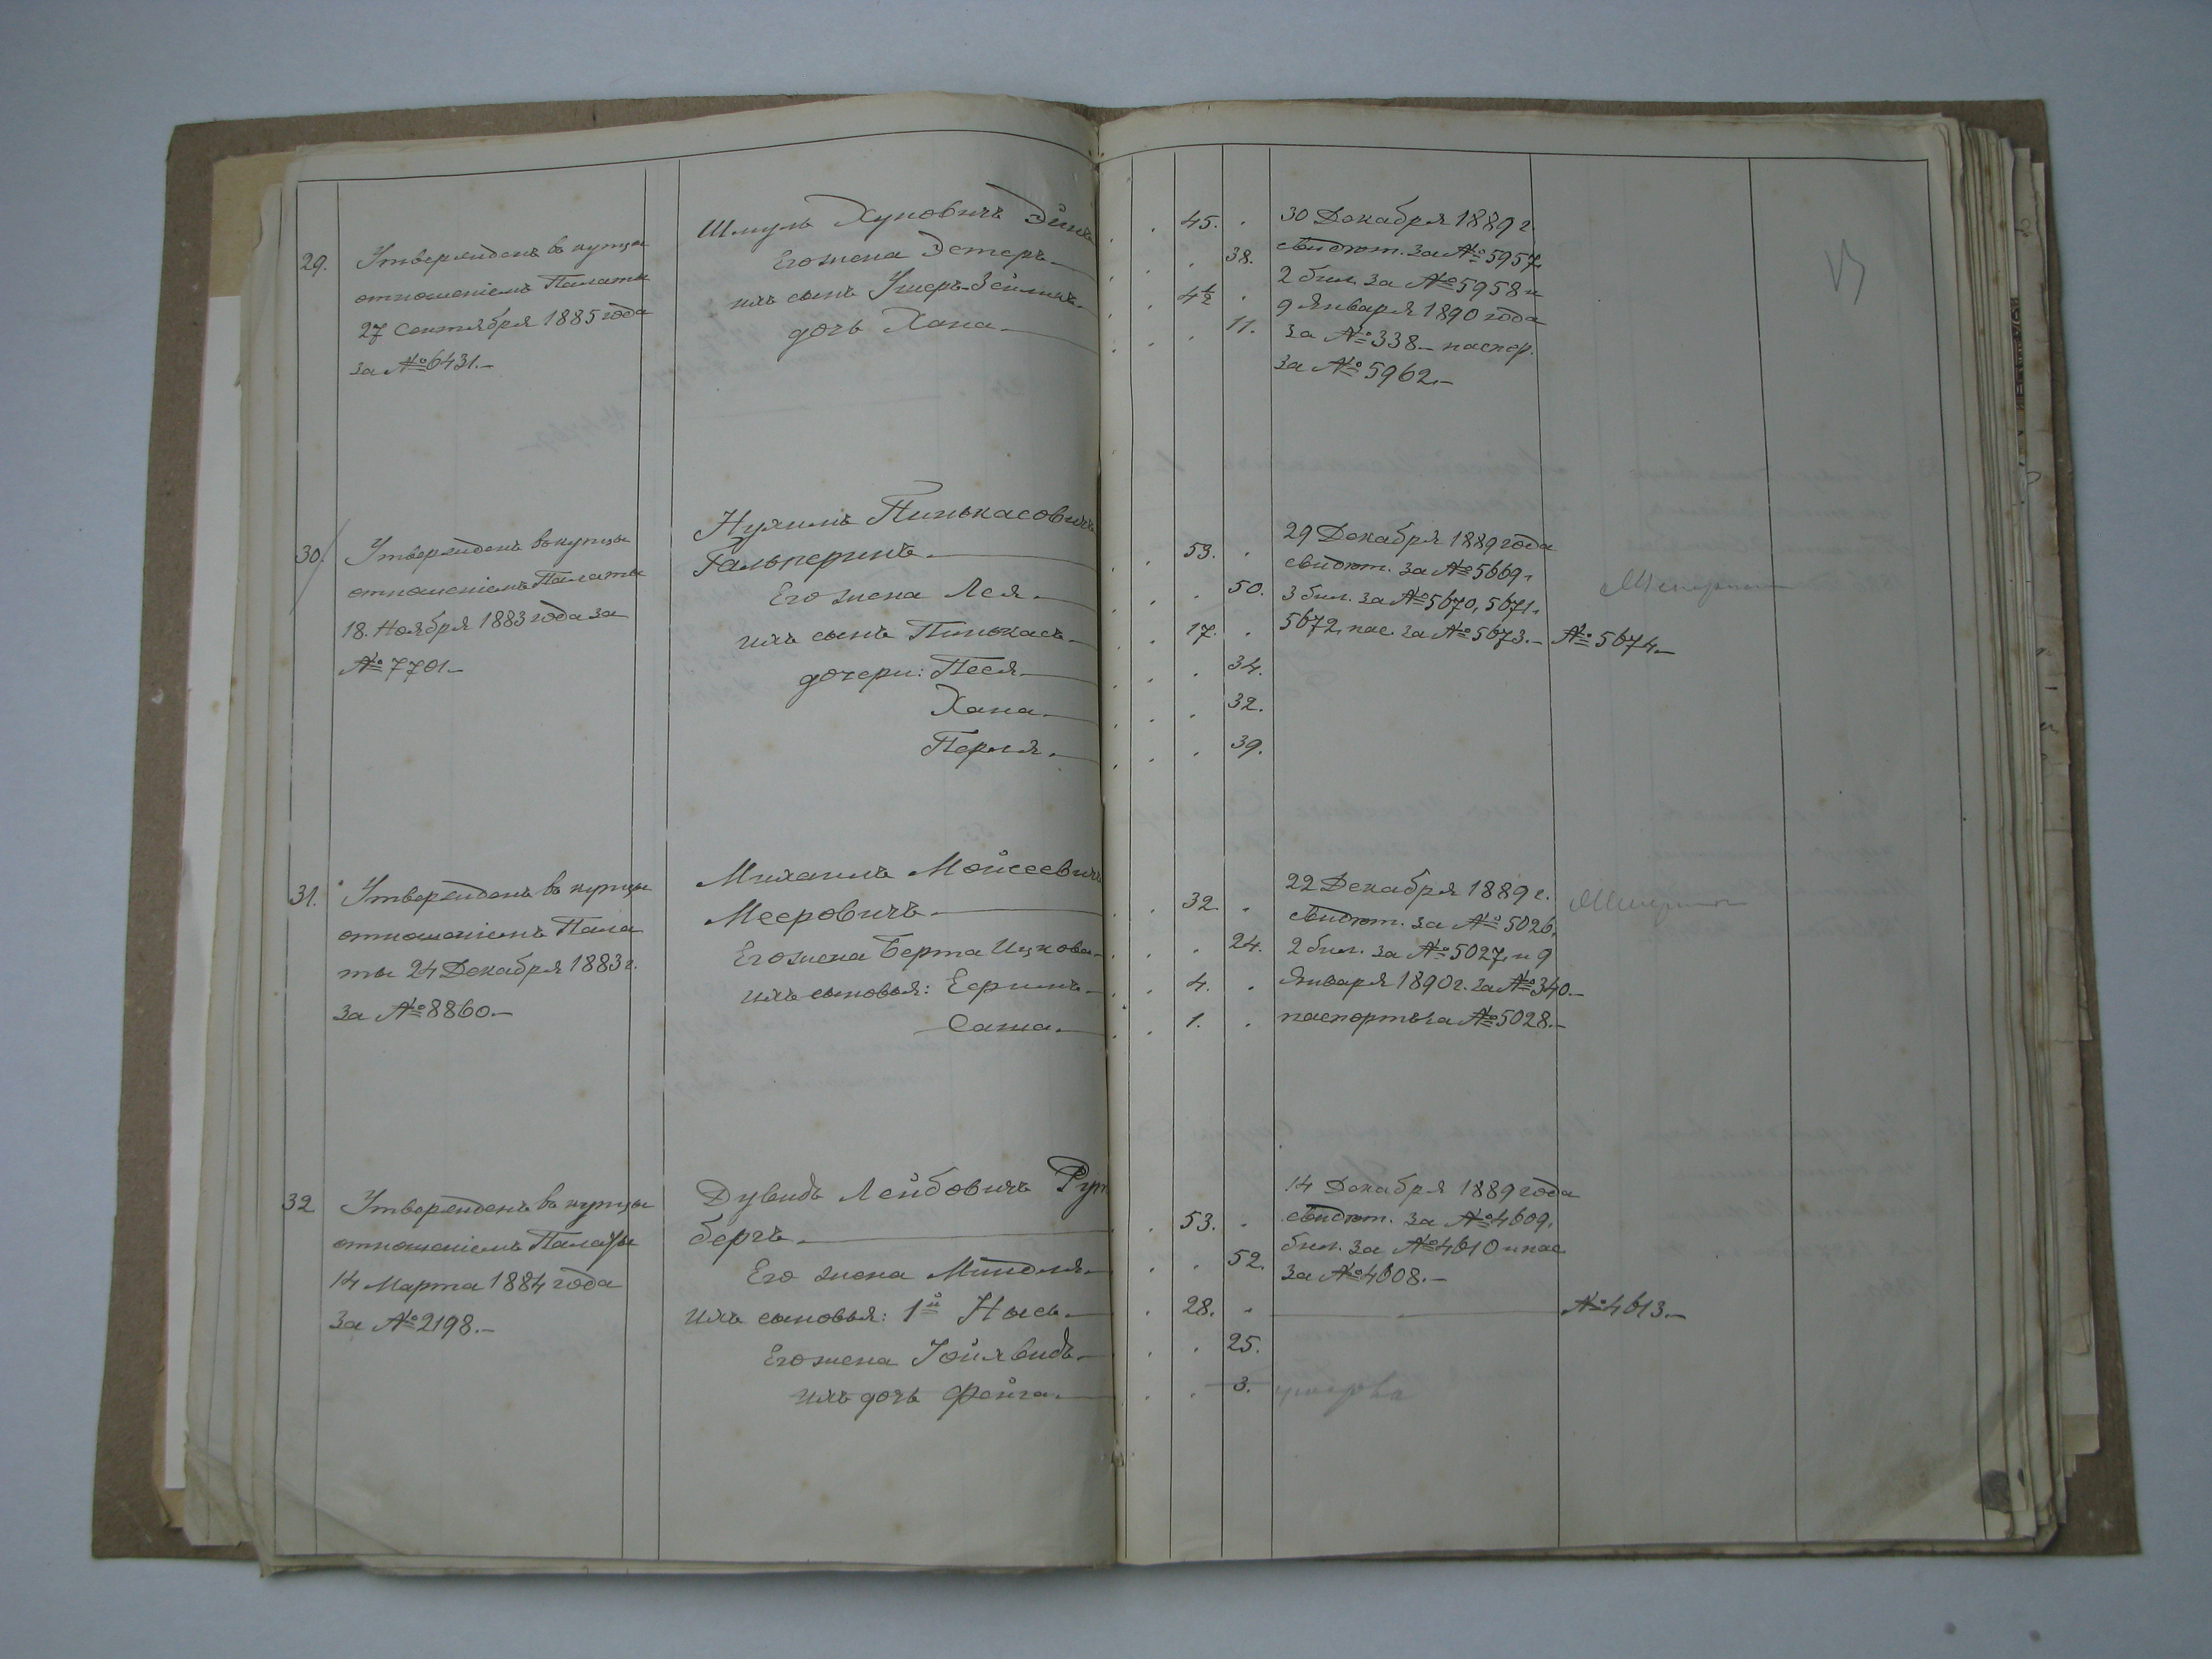 29.
Утвержденъ въ купцы
отношеніемъ Палаты
27 Сентября 1885 года
за № 6431.—
Шмуль Хуновичъ
Его жена Эстеръ.—
ихъ сынъ Ушеръ-Зейликъ.—
дочь Хана.—
45.
38.
4½
11.
30 Декабря 1889 г.
свидѣт. за № 5957,
2 бил. за № 5958 и
9 Января 1890 года
за № 338.— паспор.
за № 5962.—
30.
Утвержденъ въ купцы
отношеніемъ Палаты
18. Ноября 1883 года за
№ 7701.—
Нухимъ Пинькасовичъ
Гальперинъ.—
Его жена Лея.—
ихъ сынъ Пинькасъ.—
дочери: Песя.—
Хана.—
Перля.—
53.
50.
17.
34.
32.
39.
29 Декабря 1889 года
свидѣт. за № 5669,
3 бил. за № 5670, 5671,
5672, пас. за № 5673.— № 5674.—
31.
Утвержденъ въ купцы
отношеніемъ Пала
ты 24 Декабря 1883 г.
за № 8860.—
Михаилъ Мойсеевичъ
Мееровичъ.—
Его жена Берта Ицкова.—
ихъ сыновья: Ефимъ.—
Саша.—
32.
24.
4.
1.
22 Декабря 1889 г.
свидѣт. за № 5026,
2 бил. за № 5027, и 9
Января 1890 г. за № 340.—
паспортъ за № 5028.—
32
Утвержденъ въ купцы
отношеніемъ Палаты
14 Марта 1884 года
за № 2198.—
Дувидъ Лейбовичъ
бергъ.—
Его жена Миндля.—
ихъ сыновья: 1й Нысь.—
Его жена
ихъ дочь Фейга.—
53.
52.
28.
25.
3.
14 Декабря 1889 года
свидѣт. за № 4609,
бил. за № 4610 и пас.
за № 4608.—
№ 4613.—
умерла